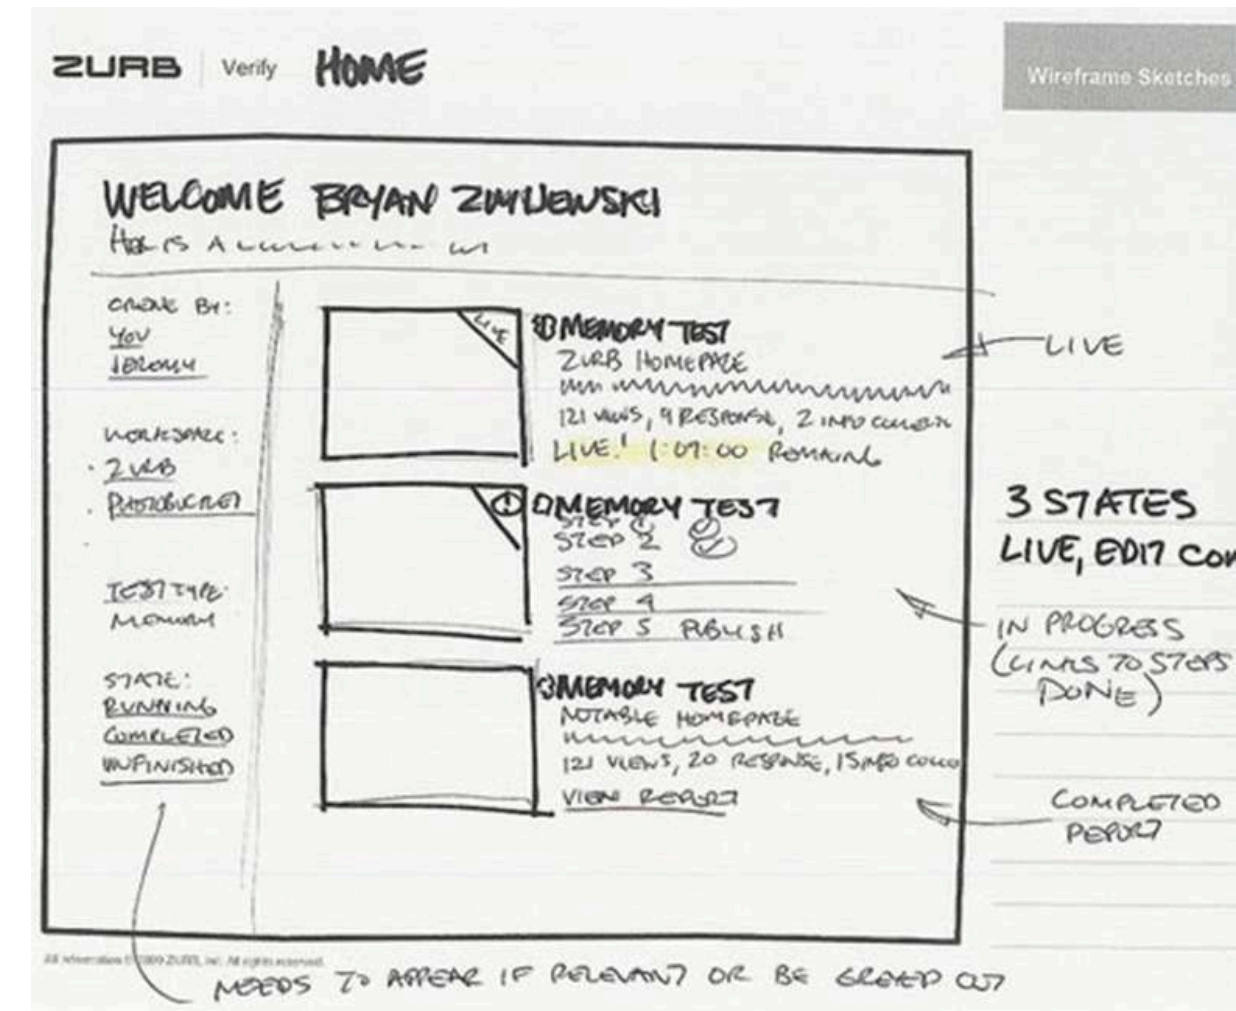 ZURB Verify HOME
Wireframe Sketches
WELCOME BRYAN ZMIJEWSKI
IS A
BY:
YOU
JEROMY
WORKSPACE:
ZURB
PHOTOBUCKET
TEST TYPE:
MEMORY
STATE:
RUNNING
COMPLETED
UNFINISHED
LIVE
MEMORY TEST
ZURB HOMEPAGE
121 VIEWS, 9 RESPONSE, 2 INFO
LIVE! 1:07:00 REMAINING
!
MEMORY TEST
STEP 1
STEP 2
STEP 3
STEP 4
STEP 5 PUBLISH
MEMORY TEST
NOTABLE HOMEPAGE
121 VIEWS, 20 RESPONSE, 15 INFO
VIEW REPORT
LIVE
3 STATES
LIVE, EDIT COM
IN PROGRESS
(LINKS TO STEPS
DONE)
COMPLETED
REPORT
All information © 2009 ZURB, Inc. All rights reserved.
NEEDS TO APPEAR IF RELEVANT OR BE GREYED OUT